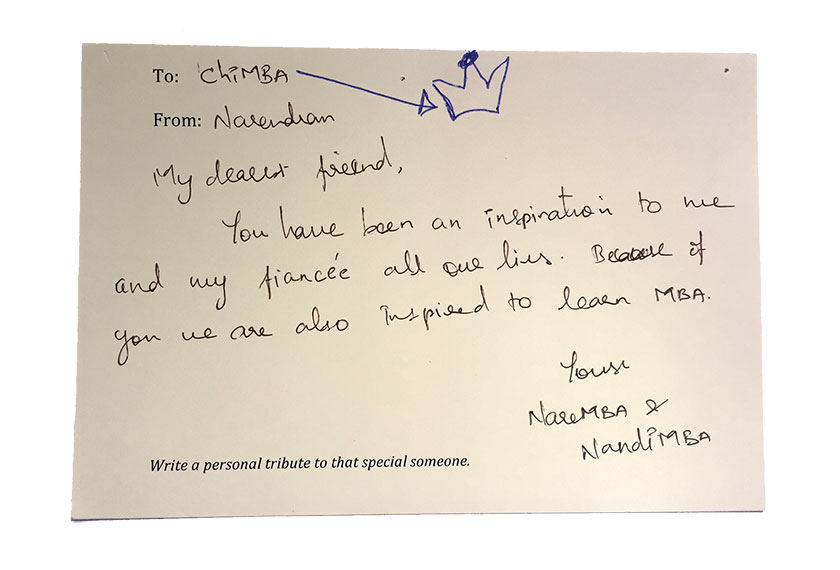 To: ChiMBA
From: Narendran
My dearest friend,
You have been an inspiration to me
and my fiancée all our lives. Because of
you we are also inspired to learn MBA.
Yours
NareMBA &
NandiMBA
Write a personal tribute to that special someone.